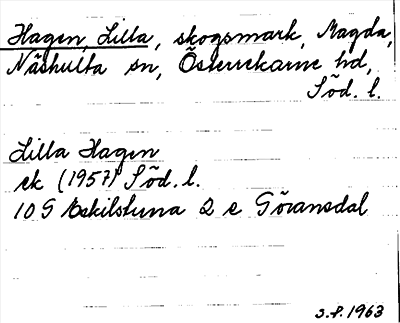 Hagen, Lilla, skogsmark, Magda,
Näshulta sn, Österrekarne hd,
Söd. l.
Lilla Hagen
ek (1957) Söd. l.
10 G Eskilstuna 2 e Göransdal
S.F. 1963